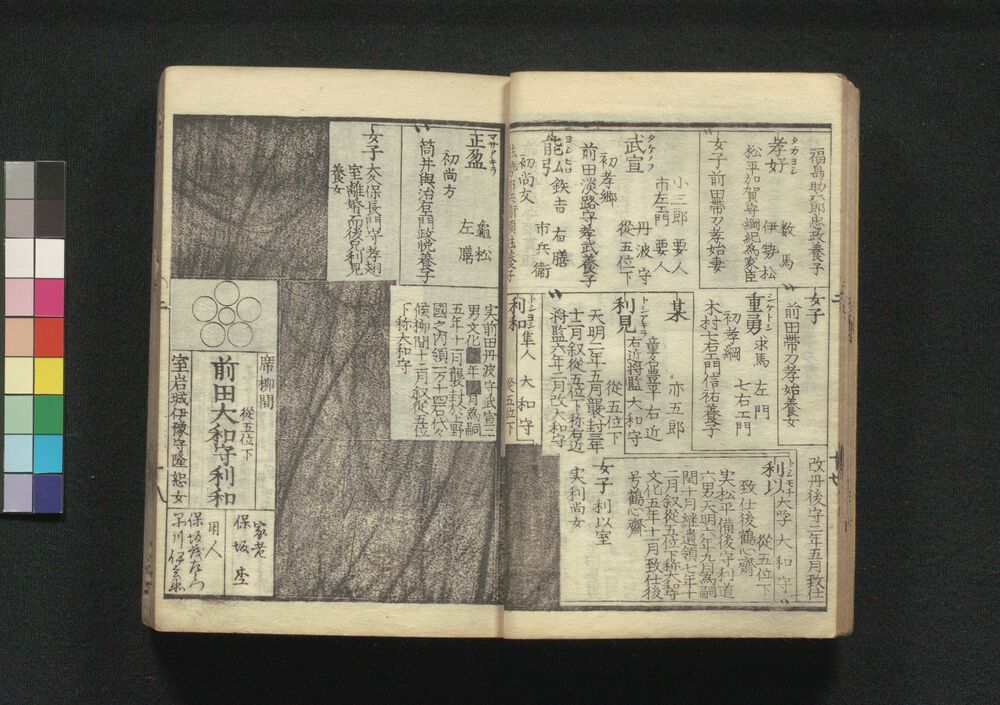 福島助六郎忠政養子
タカヨシ
孝好 数馬
伊勢松
松平加賀守綱紀為家臣
女子 前田帯刀孝始妻
タケノフ
武宣 小三郎 要人
市左エ門 要人
初孝郷 丹波守
従五位下
前田淡路守孝武養子
能弓 欽吉 右膳
初尚友 市兵衛
マサアキラ
正盈 亀松
初尚方 左膳
筒井與治左エ門政悦養子
女子 大久保長門守孝翅
室離婚而後兄利見
養女
女子
前田帯刀孝始養女
重勇 求馬 左門
初孝綱 七右エ門
木村七右エ門信祐養子
某 亦五郎
トシアキラ
利見 童名畠平 右近
右近将監 大和守
従五位下
天明二年五月襲封三年
十二月叙従五位下称右近
将監六年二月改大和守
利和 隼人 大和守
従五位下
実前田丹波守武宣二
男文化 年 月為嗣
五年十一月襲封於上野
國之内領一万十四石代々
候柳間十二月叙従五位
下称大和守
改丹後守三年五月致仕
トシモチ
利以 大学 大和守
従五位下
致仕後鶴心齋
実松平備後守利道
六男天明八年九月為嗣
閏十月継遺領七年十
二月叙従五位下称大和守
文化五年十月致仕後
号鶴心齋
女子 利以室
実利尚女
席柳間
従五位下
前田大和守利和
室岩城伊豫守隆恕女
家老
保坂
用人
保坂